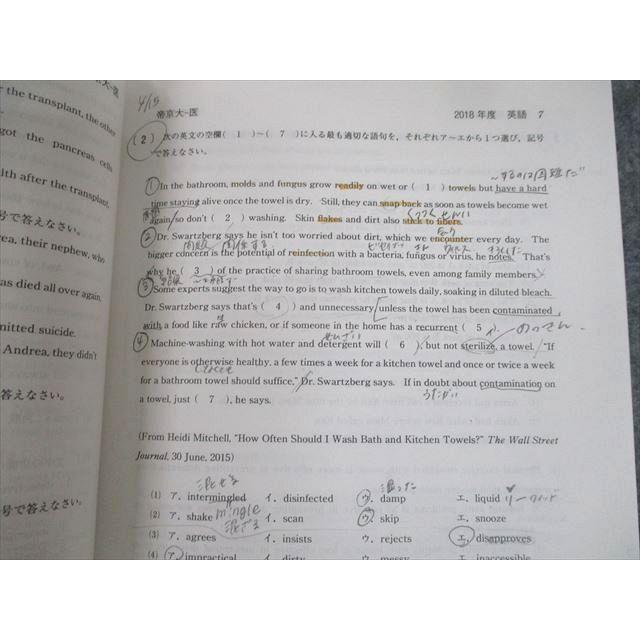 大-医
r the transplant, the other
got the pancreas cells
lth after the transplant.
号で答えなさい。
rea, their nephew, who
was died all over again.
mitted suicide.
Andrea, they didn't
答えなさい。
号で答えなさい。
4/15
帝京大-医
2018 年度 英語 7
(2) 次の英文の空欄( 1 )~( 7 )に入る最も適切な語句を、それぞれア~エから1つ選び、記号
で答えなさい。
~するのは困難だ
① In the bathroom, molds and fungus grow readily on wet or ( 1 ) towels but have a hard
time staying alive once the towel is dry. Still, they can snap back as soon as towels become wet
again, so don't ( 2 ) washing. Skin flakes and dirt also stick to fibers.
② Dr. Swartzberg says he isn't too worried about dirt, which we encounter every day. The
bigger concern is the potential of reinfection with a bacteria, fungus or virus, he notes. That's
why he ( 3 ) of the practice of sharing bathroom towels, even among family members.
③ Some experts suggest the way to go is to wash kitchen towels daily, soaking in diluted bleach.
Dr. Swartzberg says that's ( 4 ) and unnecessary unless the towel has been contaminated
with a food like raw chicken, or if someone in the home has a recurrent ( 5 ).
④ Machine-washing with hot water and detergent will ( 6 ), but not sterilize, a towel. "If
everyone is otherwise healthy, a few times a week for a kitchen towel and once or twice a week
for a bathroom towel should suffice," Dr. Swartzberg says. If in doubt about contamination on
a towel, just ( 7 ), he says.
(From Heidi Mitchell, "How Often Should I Wash Bath and Kitchen Towels?" The Wall Street
Journal, 30 June, 2015)
(1) ア. intermingled イ. disinfected ウ. damp エ. liquid
mingle
(2) ア. shake イ. scan ウ. skip エ. snooze
(3) ア. agrees イ. insists ウ. rejects エ. disapproves
(4) ア. impractical イ. dirty ウ. messy エ. inaccessible